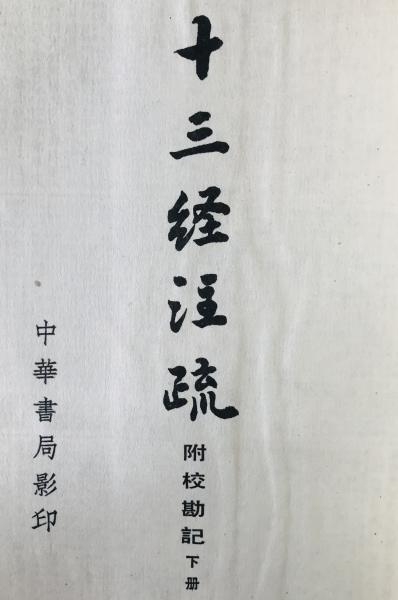 十三経注疏
附校勘記下册
中華書局影印